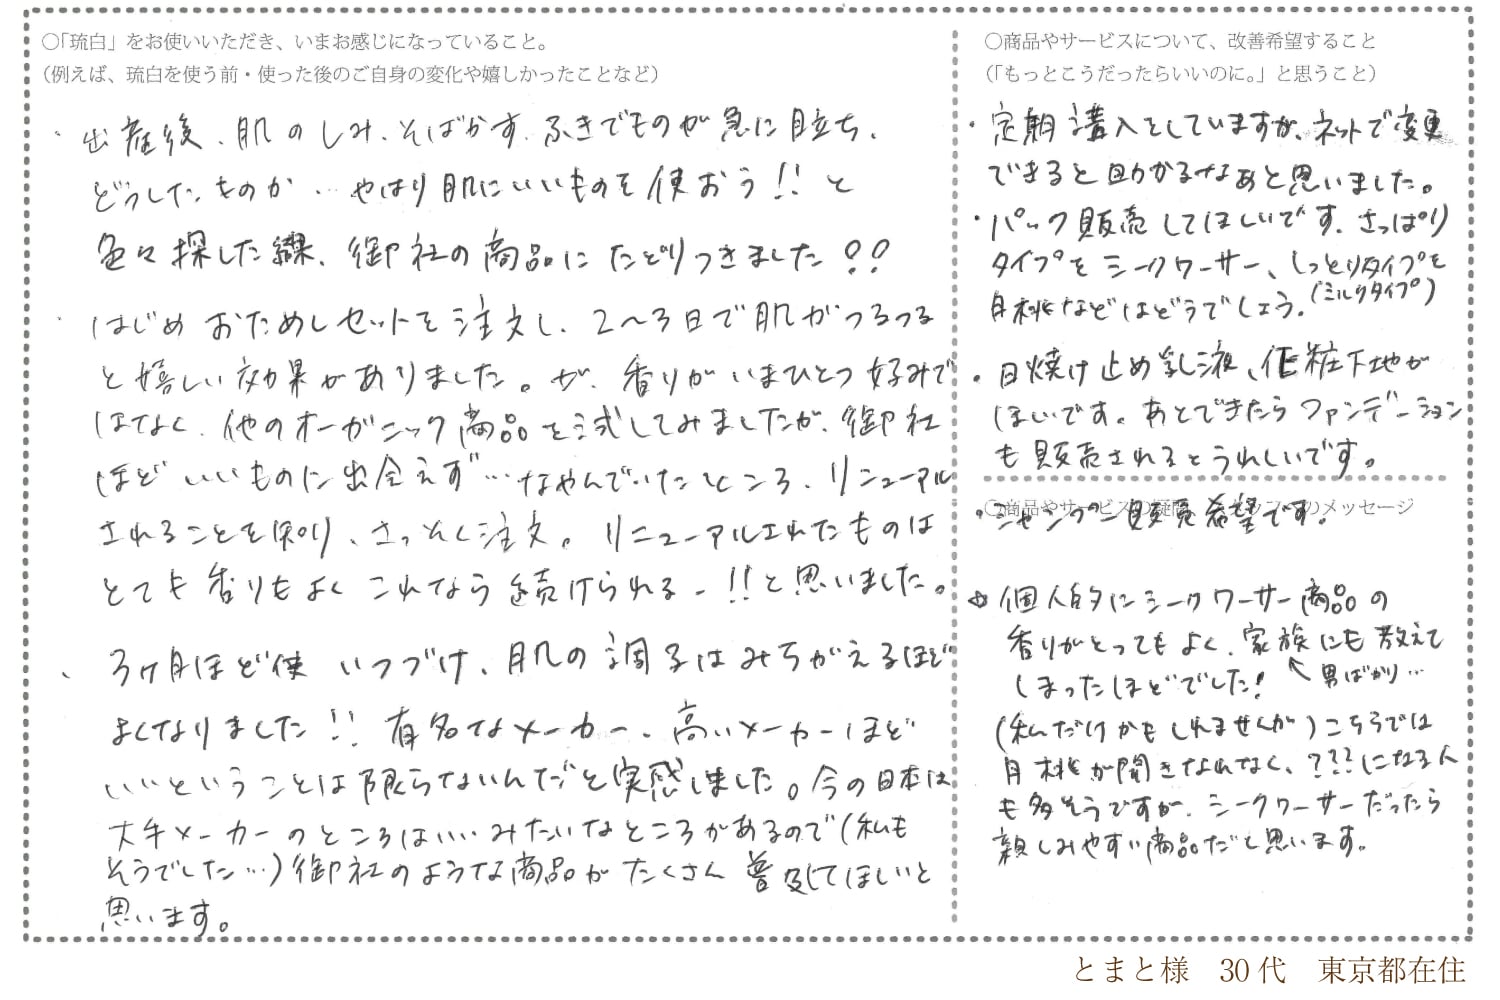 ○「琉白」をお使いいただき、いまお感じになっていること。
（例えば、琉白を使う前・使った後のご自身の変化や嬉しかったことなど）
・出産後、肌のしみ、そばかす、ふきでものが急に目立ち、
どうしたものか…やはり肌にいいものを使おう!!と
色々探した結果、御社の商品にたどりつきました!!
・はじめおためしセットを注文し、2〜3日で肌がつるつる
と嬉しい効果がありました。が、香りがいまひとつ好みで
はなく、他のオーガニック商品を試してみましたが、御社
ほどいいものに出会えず…なやんでいたところ、リニューアル
されることを知り、さっそく注文。リニューアルされたものは
とても香りもよくこれなら続けられるー!!と思いました。
、3ヶ月ほど使いつづけ、肌の調子はみちがえるほど
よくなりました!!有名なメーカー、高いメーカーほど
いいということは限らないんだと実感しました。今の日本は
大手メーカーのところはいい、みたいなところがあるので（私も
そうでした…）御社のような商品がたくさん普及してほしいと
思います。
○商品やサービスについて、改善希望すること
（「もっとこうだったらいいのに。」と思うこと）
・定期購入をしていますが、ネットで変更
できると助かるなぁと思いました。
・パック販売してほしいです。さっぱり
タイプをシークワーサー、しっとりタイプを
月桃などはどうでしょう。（ミルクタイプ）
・日焼け止め乳液、化粧下地が
ほしいです。あとできたらファンデーション
も販売されるとうれしいです。
○商品やサービスの疑問、のメッセージ
・シャンプー販売希望です。
☆個人的にシークワーサー商品の
香りがとってもよく、家族にも教えて
しまったほどでした!
↖男ばかり…
（私だけかもしれませんが）こちらでは
月桃が聞きなれなく、???になる人
も多そうですが、シークワーサーだったら
親しみやすい商品だと思います。
とまと様　30代　東京都在住